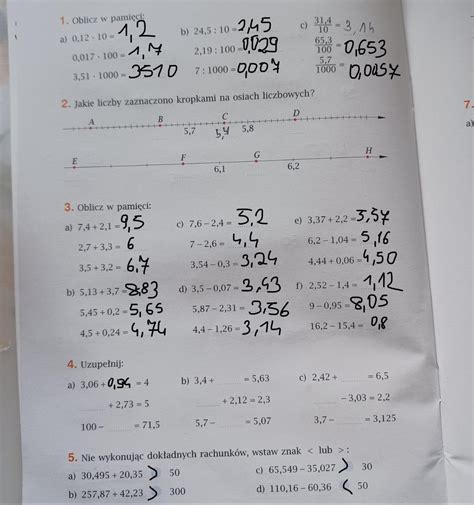 1. Oblicz w pamięci:
a) 0,12 · 10 = 1,2 b) 24,5 : 10 = 2,45 c) 31,4/10 = 3,14
0,017 · 100 = 1,7 2,19 : 100 = 0,029 65,3/100 = 0,653
3,51 · 1000 = 3510 7 : 1000 = 0,007 5,7/1000 = 0,0057
2. Jakie liczby zaznaczono kropkami na osiach liczbowych?
A B C D
5,7 5,8
E F G H
6,1 6,2
3. Oblicz w pamięci:
a) 7,4 + 2,1 = 9,5 c) 7,6 – 2,4 = 5,2 e) 3,37 + 2,2 = 5,57
2,7 + 3,3 = 6 7 – 2,6 = 4,4 6,2 – 1,04 = 5,16
3,5 + 3,2 = 6,7 3,54 – 0,3 = 3,24 4,44 + 0,06 = 4,50
b) 5,13 + 3,7 = 8,83 d) 3,5 – 0,07 = 3,43 f) 2,52 – 1,4 = 1,12
5,45 + 0,2 = 5,65 5,87 – 2,31 = 3,56 9 – 0,95 = 8,05
4,5 + 0,24 = 4,74 4,4 – 1,26 = 3,14 16,2 – 15,4 = 0,8
4. Uzupełnij:
a) 3,06 + 0,94 = 4 b) 3,4 + = 5,63 c) 2,42 + = 6,5
+ 2,73 = 5 + 2,12 = 2,3 – 3,03 = 2,2
100 – = 71,5 5,7 – = 5,07 3,7 – = 3,125
5. Nie wykonując dokładnych rachunków, wstaw znak < lub > :
a) 30,495 + 20,35 > 50 c) 65,549 – 35,027 > 30
b) 257,87 + 42,23 > 300 d) 110,16 – 60,36 < 50
7.
a)